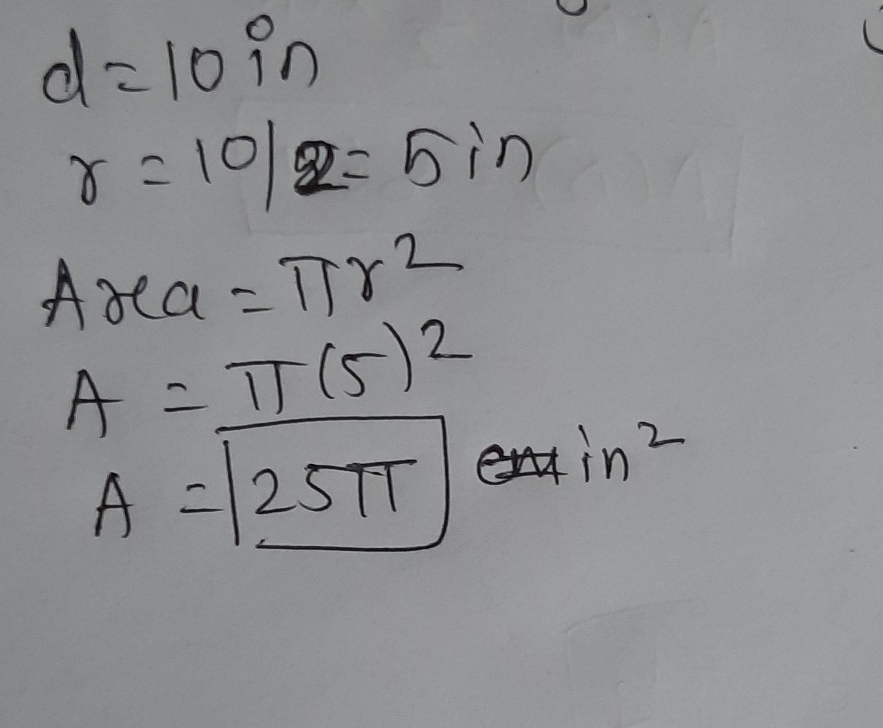 d = 10 in
r = 10/2 = 5 in
Area = πr²
A = π(5)²
A = 25π in²